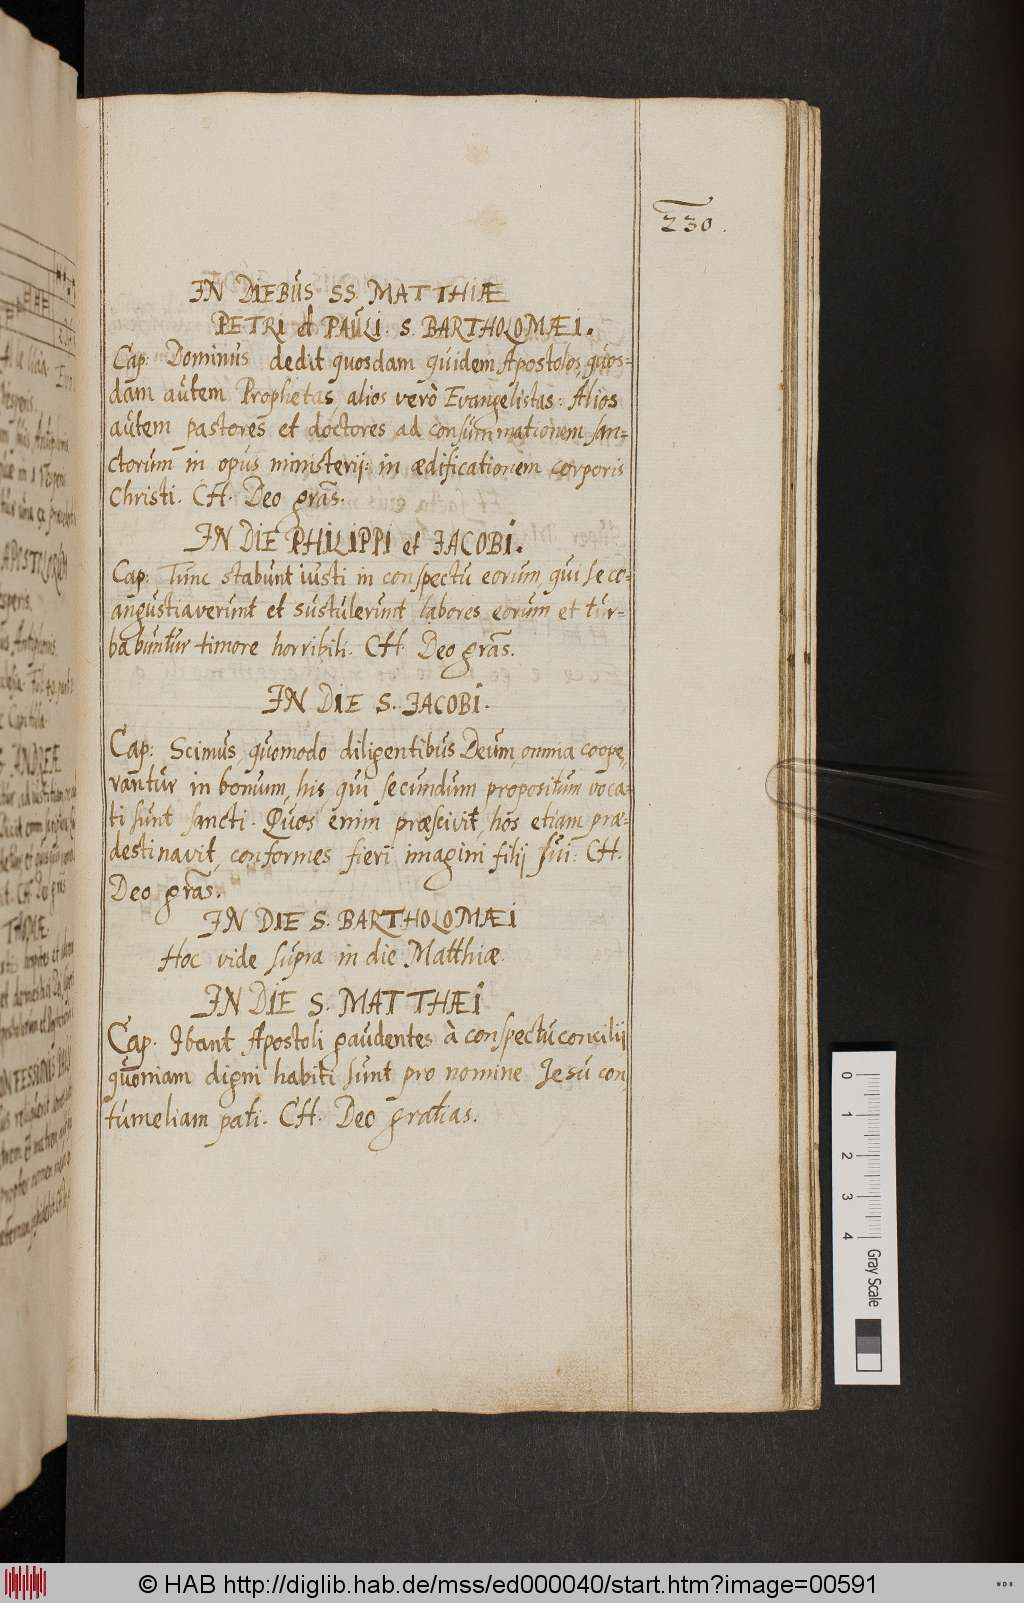 230.
IN DIEBUS SS. MATTHIÆ
PETRI et PAULI. S. BARTHOLOMÆI.
Cap: Dominus dedit quosdam quidem Apostolos, quos=
dam autem Prophetas alios verò Evangelistas: Alios
autem pastores et doctores ad consummationem san=
ctorum in opus ministerij: in ædificationem corporis
Christi. CH. Deo gras.
IN DIE PHILIPPI et JACOBI.
Cap: Tunc stabunt iusti in conspectu eorum, qui se co=
angustiaverunt et sustulerunt labores eorum et tur=
babuntur timore horribili. CH. Deo gras.
IN DIE S. JACOBI.
Cap: Scimus, quomodo diligentibus Deum, omnia coope,
rantur in bonum, his qui secundum propositum voca=
ti sunt sancti. Quos enim præscivit, hos etiam præ=
destinavit, conformes fieri imagini filij sui: CH.
Deo gras.
IN DIE S. BARTHOLOMÆI
Hoc vide supra in die Matthiæ.
IN DIE S. MATTHÆI
Cap. Ibant Apostoli gaudentes à conspectu concilij
quoniam digni habiti sunt pro nomine Jesu con,
tumeliam pati. CH. Deo gratias.
0 1 2 3 4 Gray Scale
© HAB http://diglib.hab.de/mss/ed000040/start.htm?image=00591